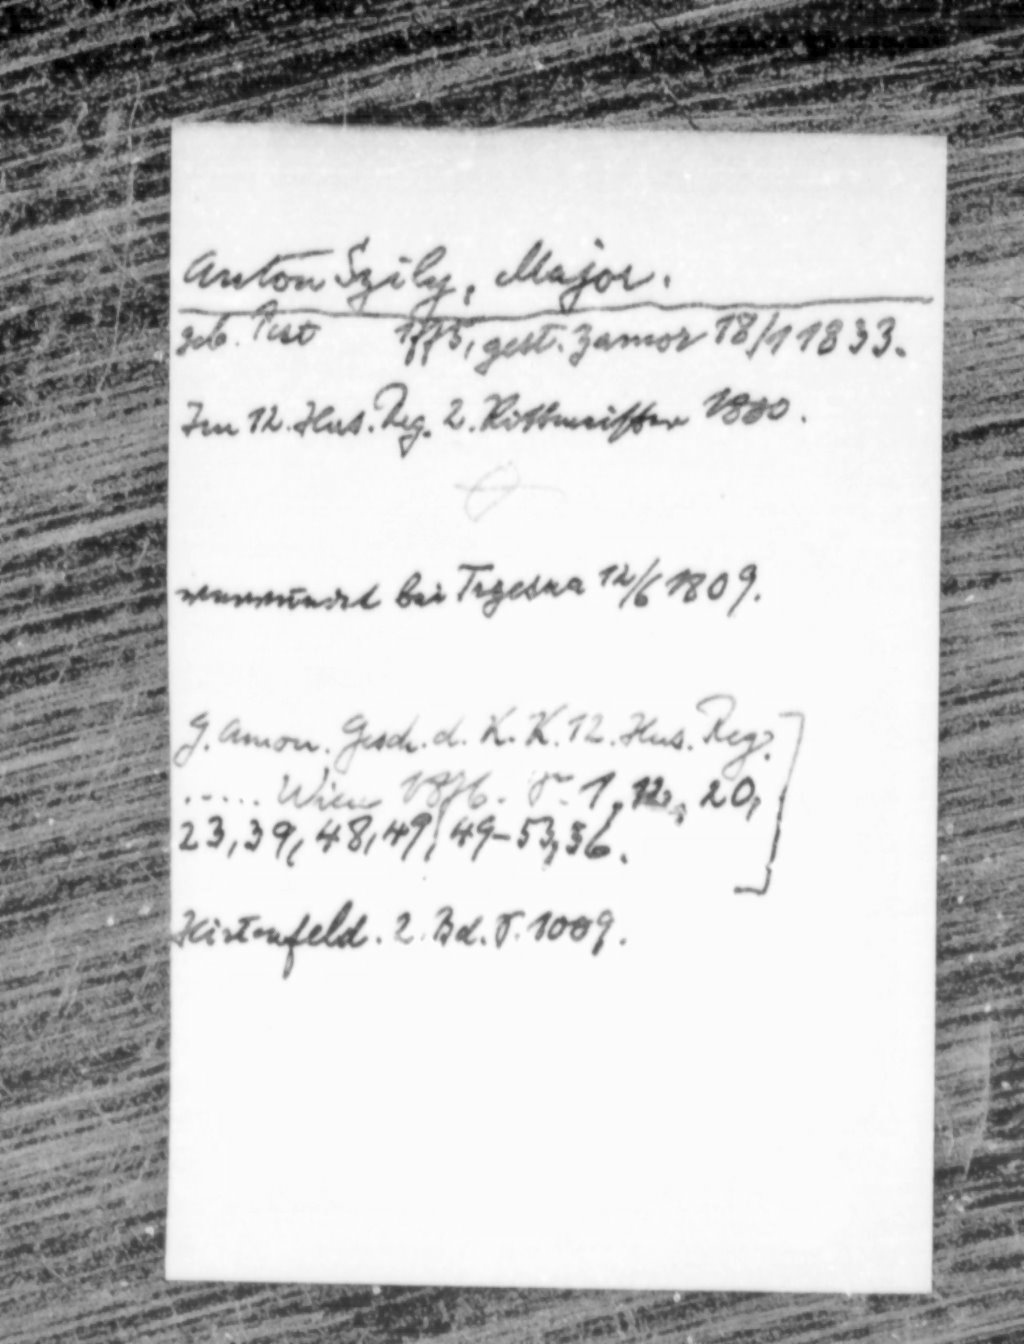 Anton Szily, Major.
geb. Pest 1775, gest. Zamor 18/1 1833.
Im 12. Hus. Reg. 2. Rittmeister 1800.
verwundet bei Trzesna 12/6 1809.
G. Amon. Gesch. d. K. K. 12. Hus. Reg.
..... Wien 1876. S. 1, 12, 20,
23, 39, 48, 49, 49-53, 56.
Hirtenfeld. 2. Bd. S. 1009.